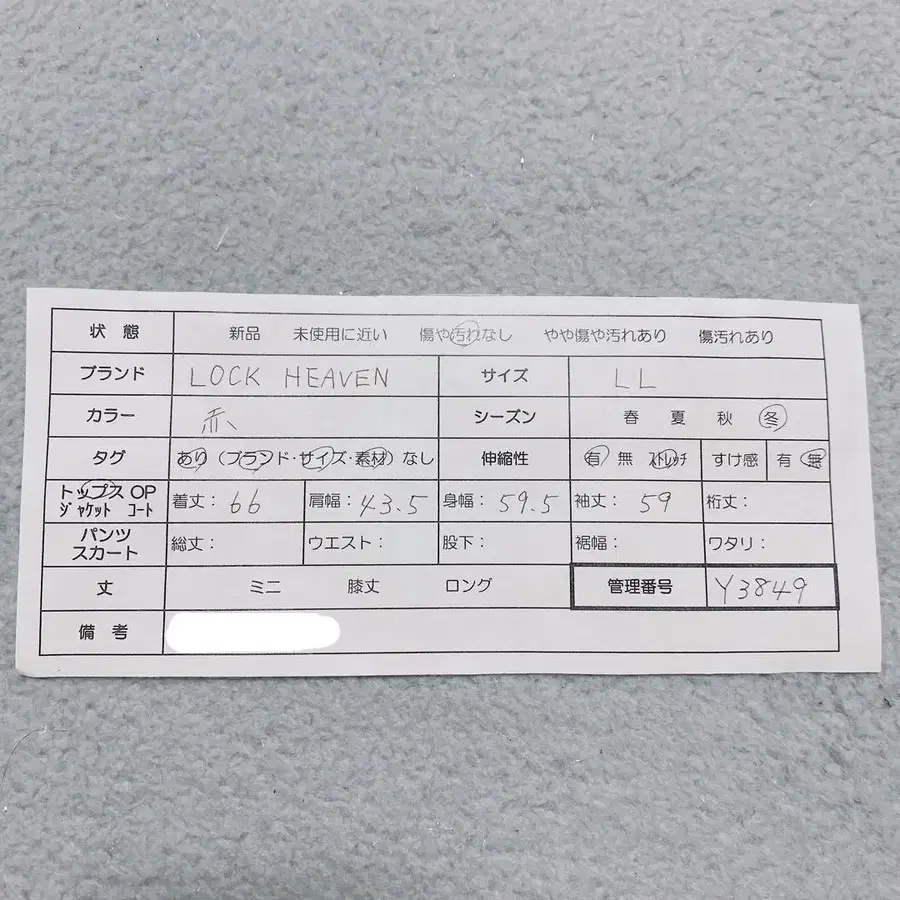 状態 新品 未使用に近い 傷や汚れなし やや傷や汚れあり 傷汚れあり
ブランド LOCK HEAVEN サイズ LL
カラー 赤 シーズン 春 夏 秋 冬
タグ あり(ブランド・サイズ・素材)なし 伸縮性 有 無 ストレッチ すけ感 有 無
トップス OP
ジャケット コート 着丈: 66 肩幅: 43.5 身幅: 59.5 袖丈: 59 裄丈:
パンツ
スカート 総丈: ウエスト: 股下: 裾幅: ワタリ:
丈 ミニ 膝丈 ロング 管理番号 Y3849
備考